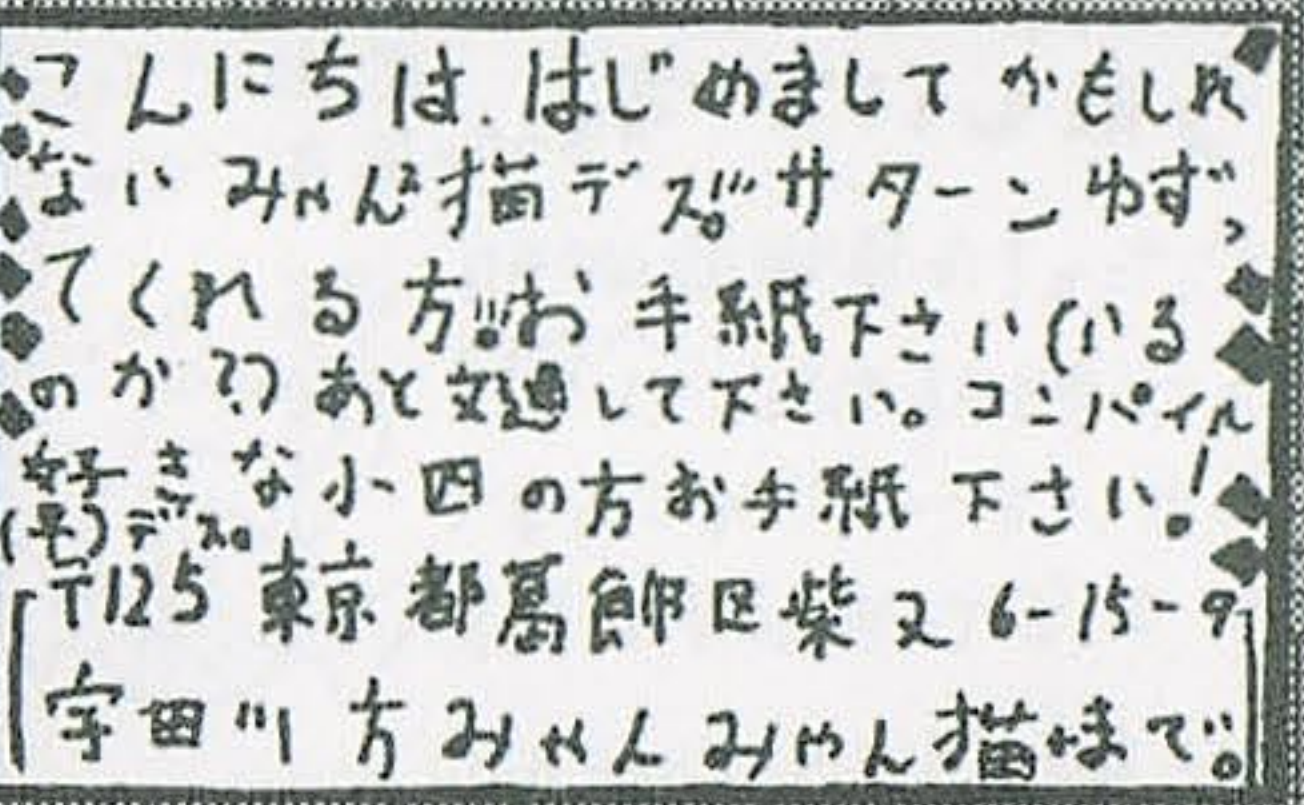 こんにちは.はじめましてかもしれ
ないみゃん²描デズ。サターンゆずっ
てくれる方!!お手紙下さい(いる
のか?)あと文通して下さい。コンパイル
好きな小四の方お手紙下さい!
(宅)デズ。
〒125 東京都葛飾区柴又6-15-9
宇田川方みゃんみゃん描まで。